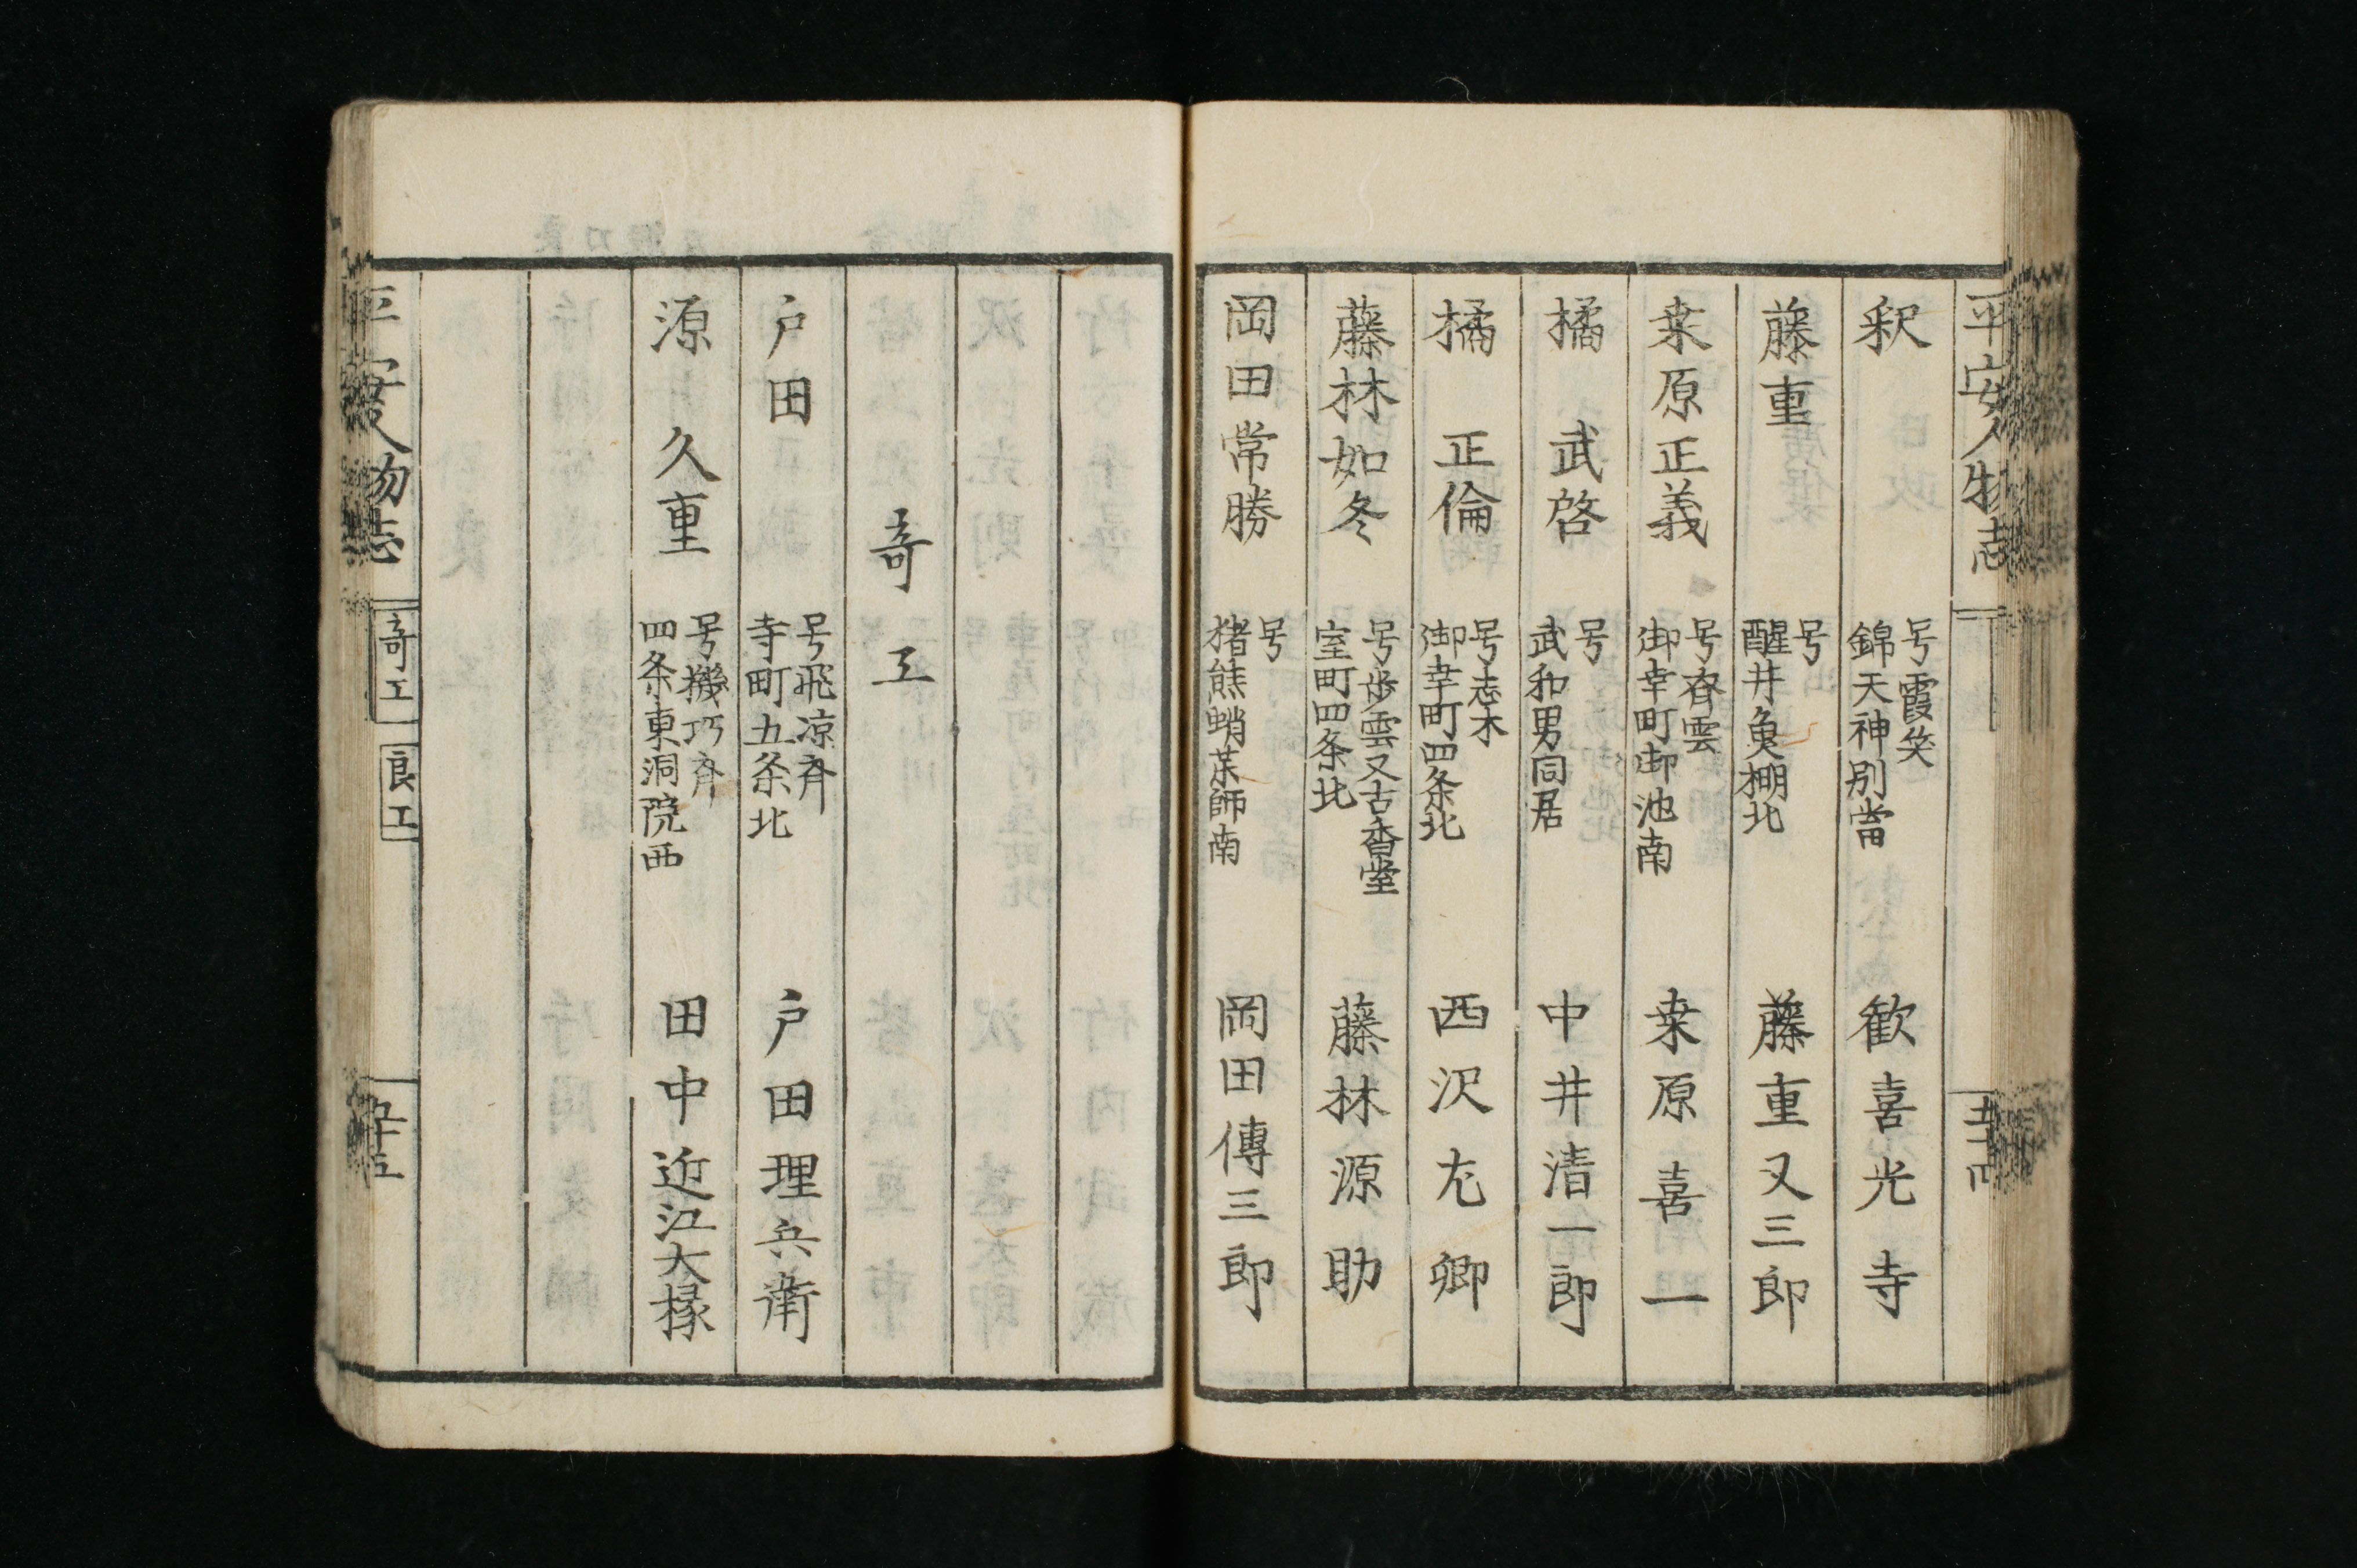 平安人物志
五十四
釈 号霞笑 錦天神別當 歓喜光寺
藤重 号 醒井魚棚北 藤重又三郎
桒原正義 号斉雲 御幸町御池南 桒原喜一
橘武啓 号 武和男同居 中井清一郎
橘正倫 号志木 御幸町四条北 西沢左卿
藤林如冬 号歩雲又古香堂 室町四条北 藤林源助
岡田常勝 号 猪熊蛸茶師南 岡田傳三郎
竒工
戸田 号飛凉斉 寺町五条北 戸田理兵衛
源久重 号機巧斉 四条東洞院西 田中近江大掾
平安人物志
竒工
良工
五十五